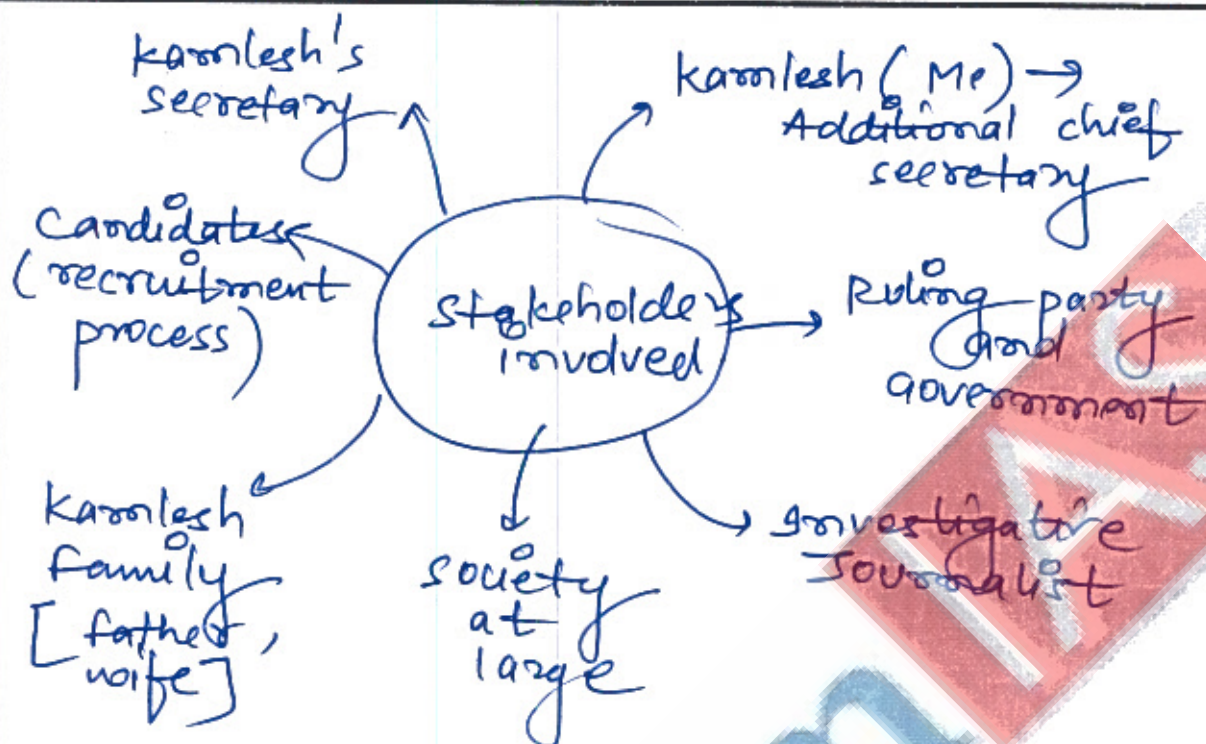 Kamlesh's
secretary
Kamlesh (Me) →
Additional chief
secretary
Candidates
(recruitment
process)
Stakeholders
involved
Ruling party
and
Government
Kamlesh
family
[father,
wife]
society
at
large
Investigative
Journalist
IA